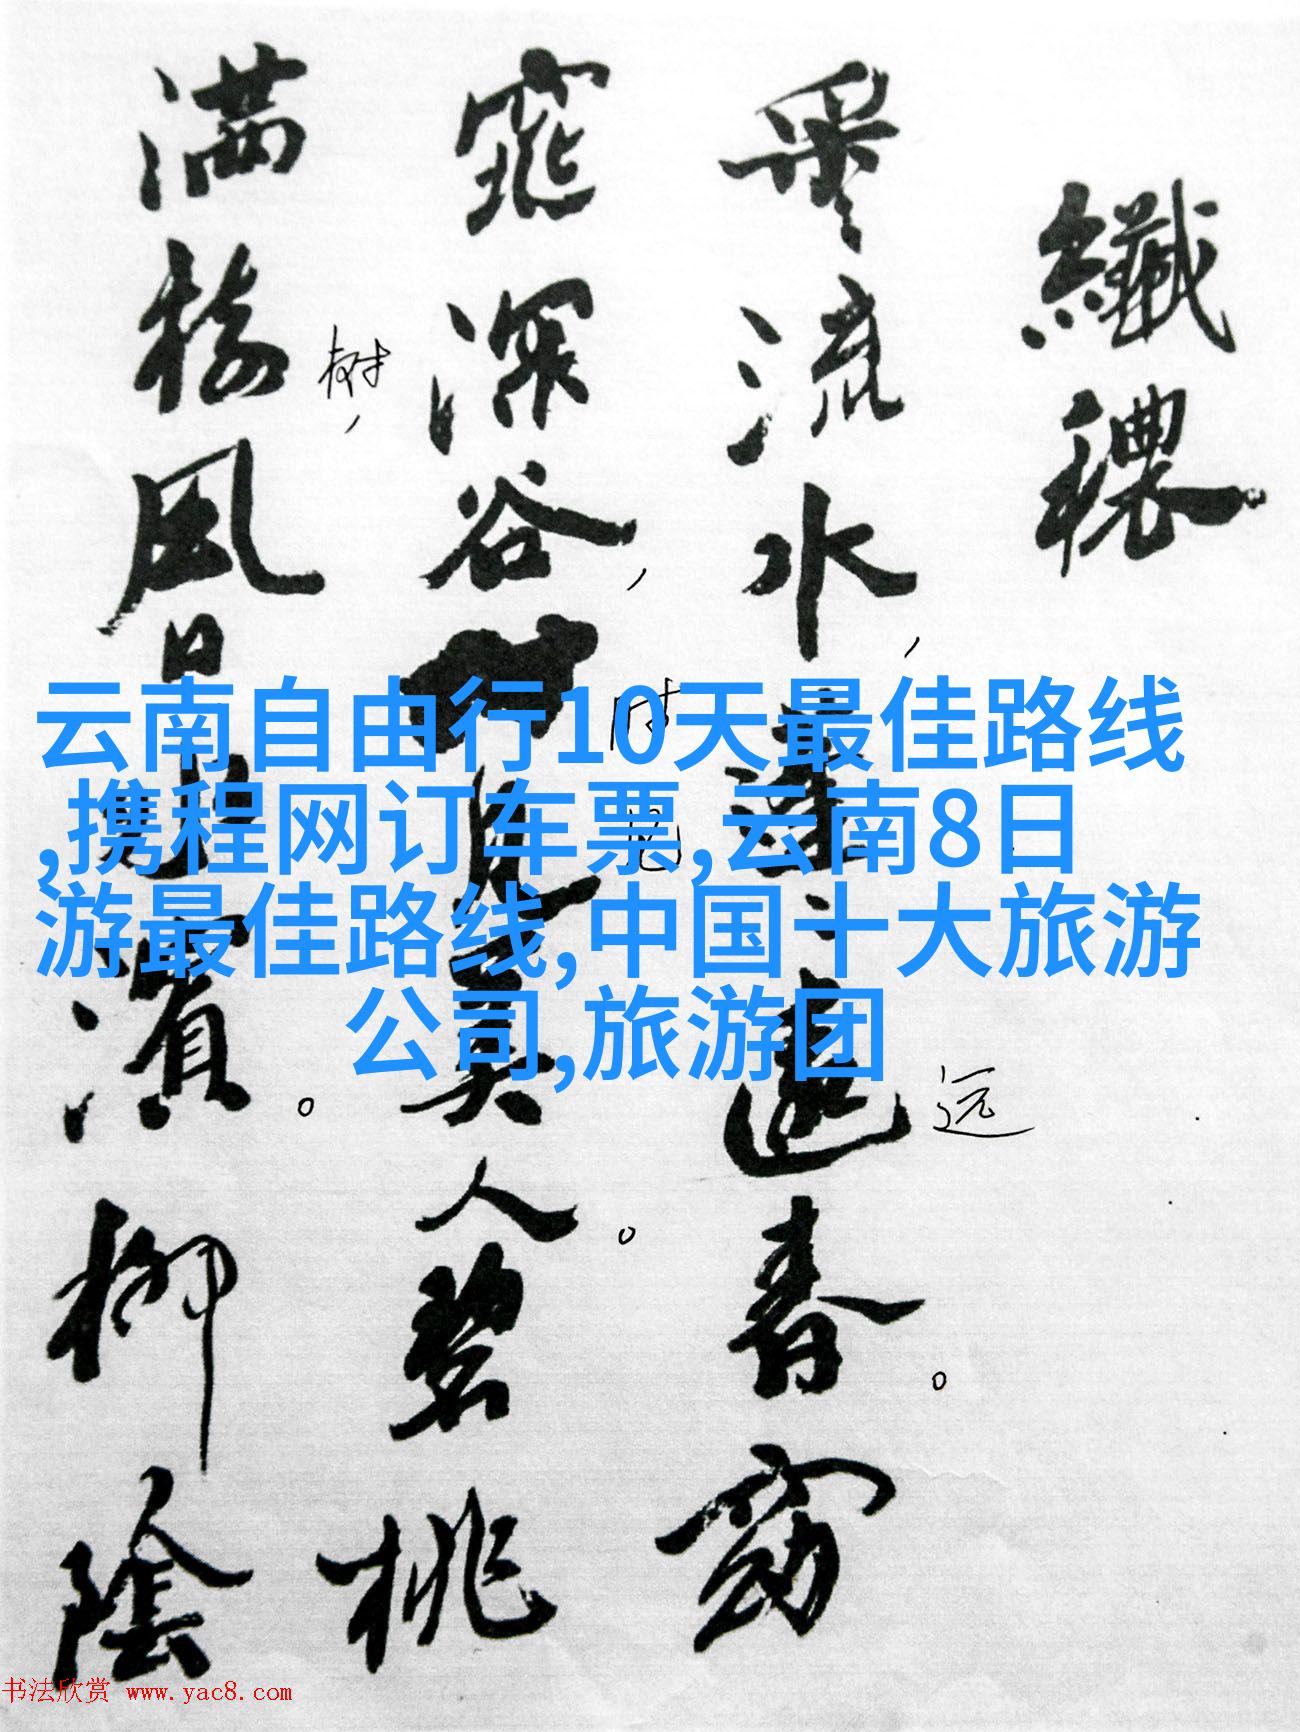 纖穠
采流水,蓬、遠春。窈
窕深谷,見美人。碧桃
满樹,風日水濱。柳陰
树
时
见
远
云南自由行10天最佳路线
,携程网订车票,云南8日
游最佳路线,中国十大旅游
公司,旅游团
书法欣赏 www.yac8.com